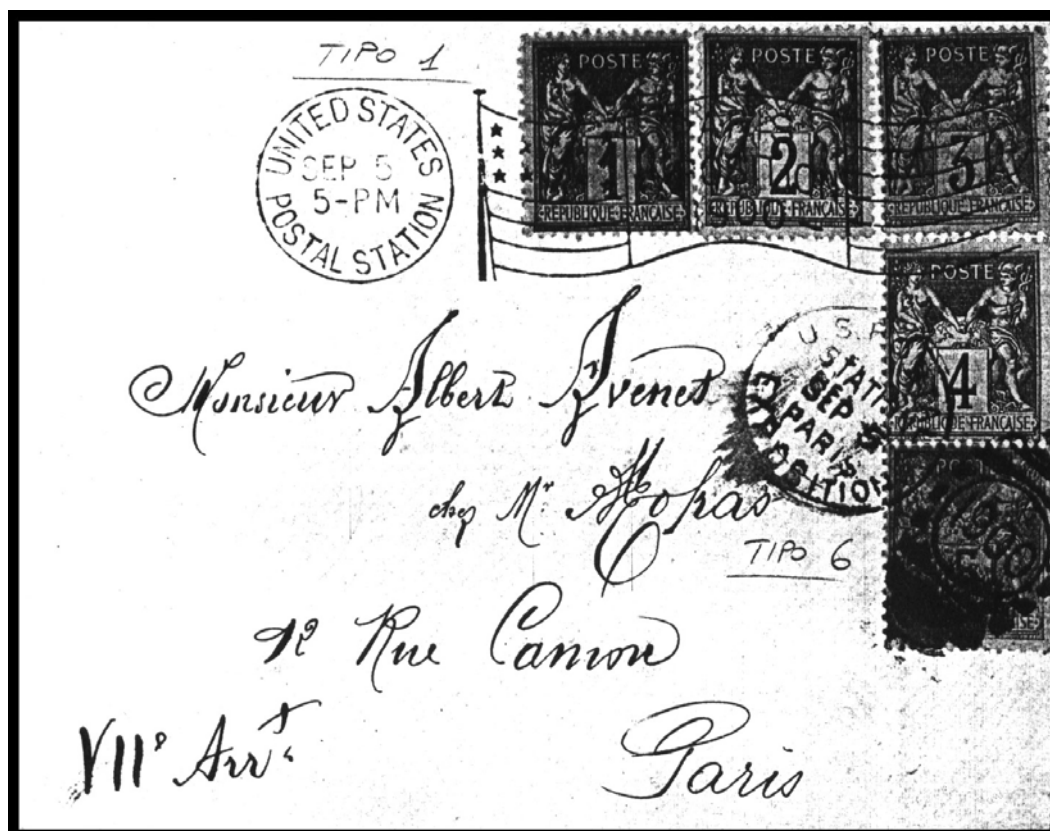 TIPO 1
UNITED STATES
SEP 5
5-PM
POSTAL STATION
POSTE
1
REPUBLIQUE FRANÇAISE
POSTE
2
REPUBLIQUE FRANÇAISE
POSTE
3
REPUBLIQUE FRANÇAISE
POSTE
4
REPUBLIQUE FRANÇAISE
U.S.P.
STAT
SEP 5
PARIS
EXPOSITION
Monsieur Albert Avenet
chez Mr. Hopas
TIPO 6
12 Rue Camou
VIIe Arrt
Paris